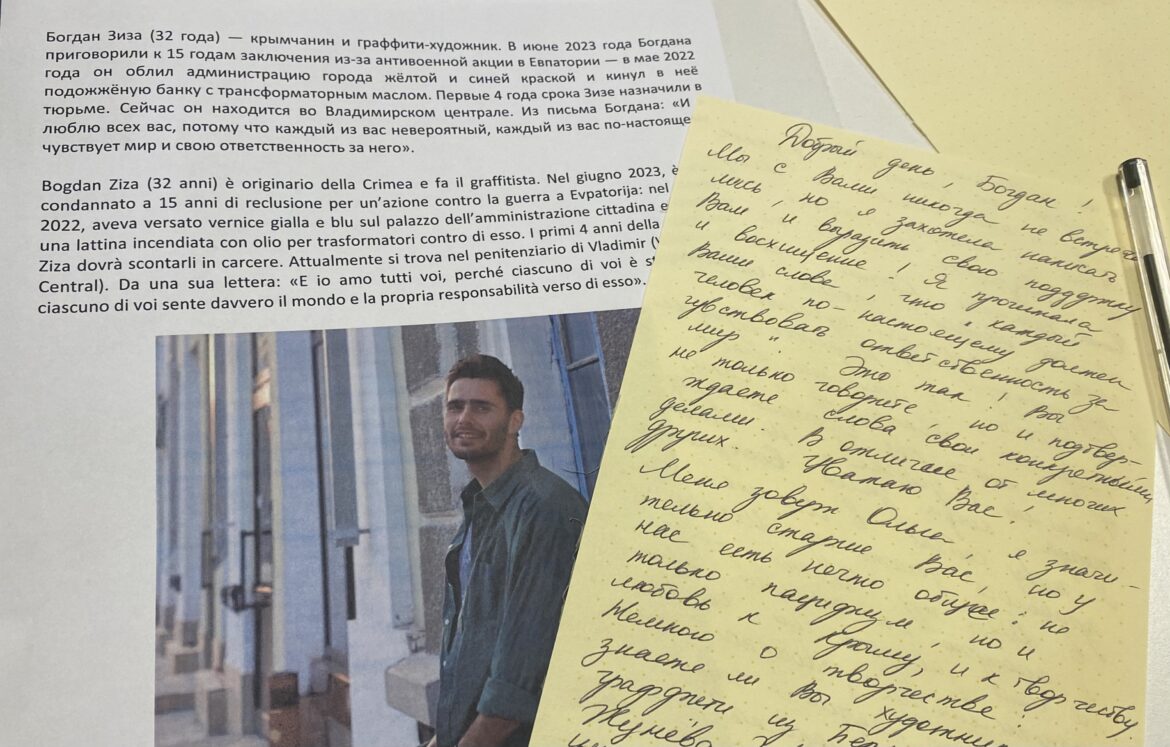 Богдан Зиза (32 года) — крымчанин и граффити-художник. В июне 2023 года Богдана
приговорили к 15 годам заключения из-за антивоенной акции в Евпатории — в мае 2022
года он облил администрацию города жёлтой и синей краской и кинул в неё
подожжёную банку с трансформаторным маслом. Первые 4 года срока Зизе назначили в
тюрьме. Сейчас он находится во Владимирском централе. Из письма Богдана: «И
люблю всех вас, потому что каждый из вас невероятный, каждый из вас по-настояще
чувствует мир и свою ответственность за него».
Bogdan Ziza (32 anni) è originario della Crimea e fa il graffitista. Nel giugno 2023, è
condannato a 15 anni di reclusione per un'azione contro la guerra a Evpatorija: nel
2022, aveva versato vernice gialla e blu sul palazzo dell'amministrazione cittadina e
una lattina incendiata con olio per trasformatori contro di esso. I primi 4 anni della
Ziza dovrà scontarli in carcere. Attualmente si trova nel penitenziario di Vladimir (
Central). Da una sua lettera: «E io amo tutti voi, perché ciascuno di voi è
ciascuno di voi sente davvero il mondo e la propria responsabilità verso di esso».
Добрый день, Богдан!
Мы с Вами никогда не встреча-
лись, но я захотела написать
Вам и выразить свою поддержку
и восхищение! Я прочитала
Ваши слова, что "каждый
человек по-настоящему должен
чувствовать ответственность за
мир". Это так! Вы
не только говорите, но и подтвер-
ждаете слова свои конкретными
делами. В отличие от многих
других. Уважаю Вас!
Меня зовут Ольга, я значи-
тельно старше Вас, но у
нас есть нечто общее: не
только пацифизм, но и
любовь к Крыму, и к творчеству
Немного о творчестве:
знаете ли Вы художни
граффити из